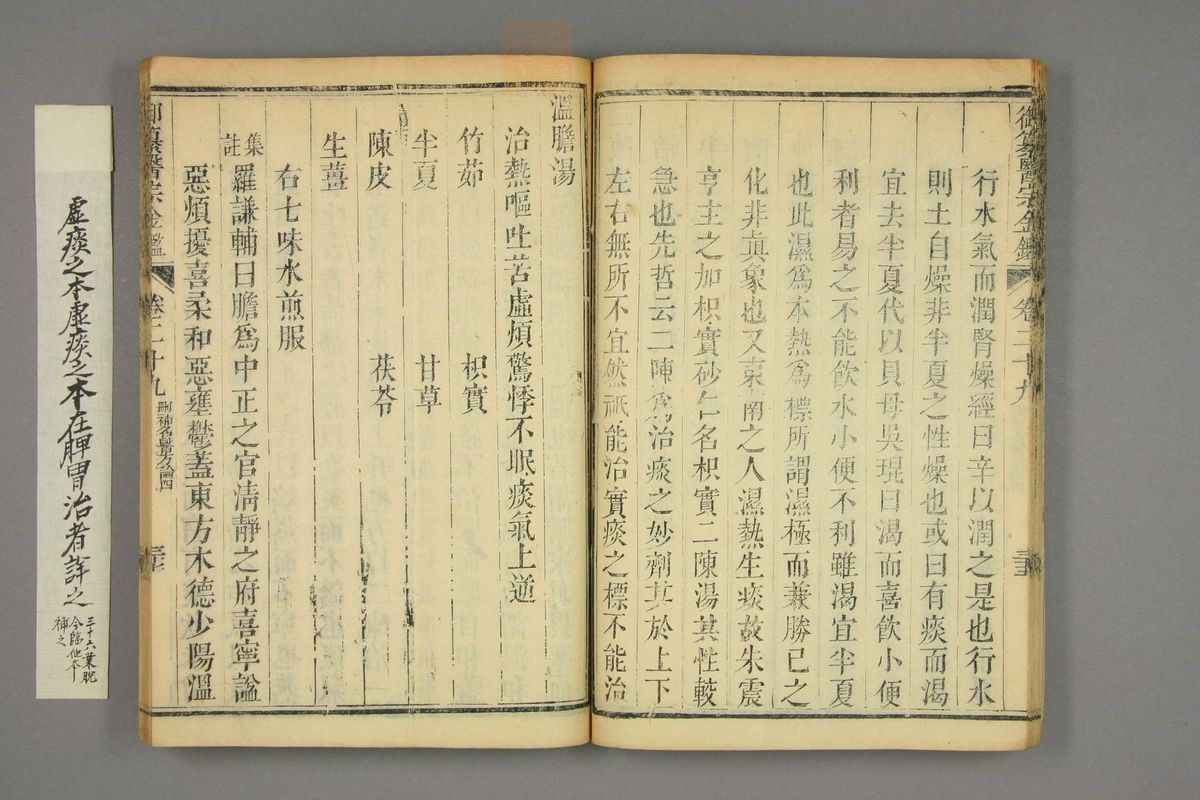 御纂醫宗金鑑 卷二十九 三十五
行水氣而潤腎燥經曰辛以潤之是也行水
則土自燥非半夏之性燥也或曰有痰而渴
宜去半夏代以貝母吳琨曰渴而喜飲小便
利者易之不能飲水小便不利雖渴宜半夏
也此濕爲本熱爲標所謂濕極而兼勝已之
化非眞象也又東南之人濕熱生痰故朱震
亨主之加枳實砂仁名枳實二陳湯其性較
急也先哲云二陳爲治痰之妙劑其於上下
左右無所不宜然祇能治實痰之標不能治
溫膽湯
治熱嘔吐苦虛煩驚悸不眠痰氣上逆
竹茹 枳實
半夏 甘草
陳皮 茯苓
生薑
右七味水煎服
集註
羅謙輔曰膽爲中正之官淸靜之府喜寧謐
惡煩擾喜柔和惡壅鬱蓋東方木德少陽溫
御纂醫宗金鑑 卷二十九 刪補名醫方論四
虛痰之本虛痰之本在脾胃治者詳之
三十六葉脫
今臨他本
補之